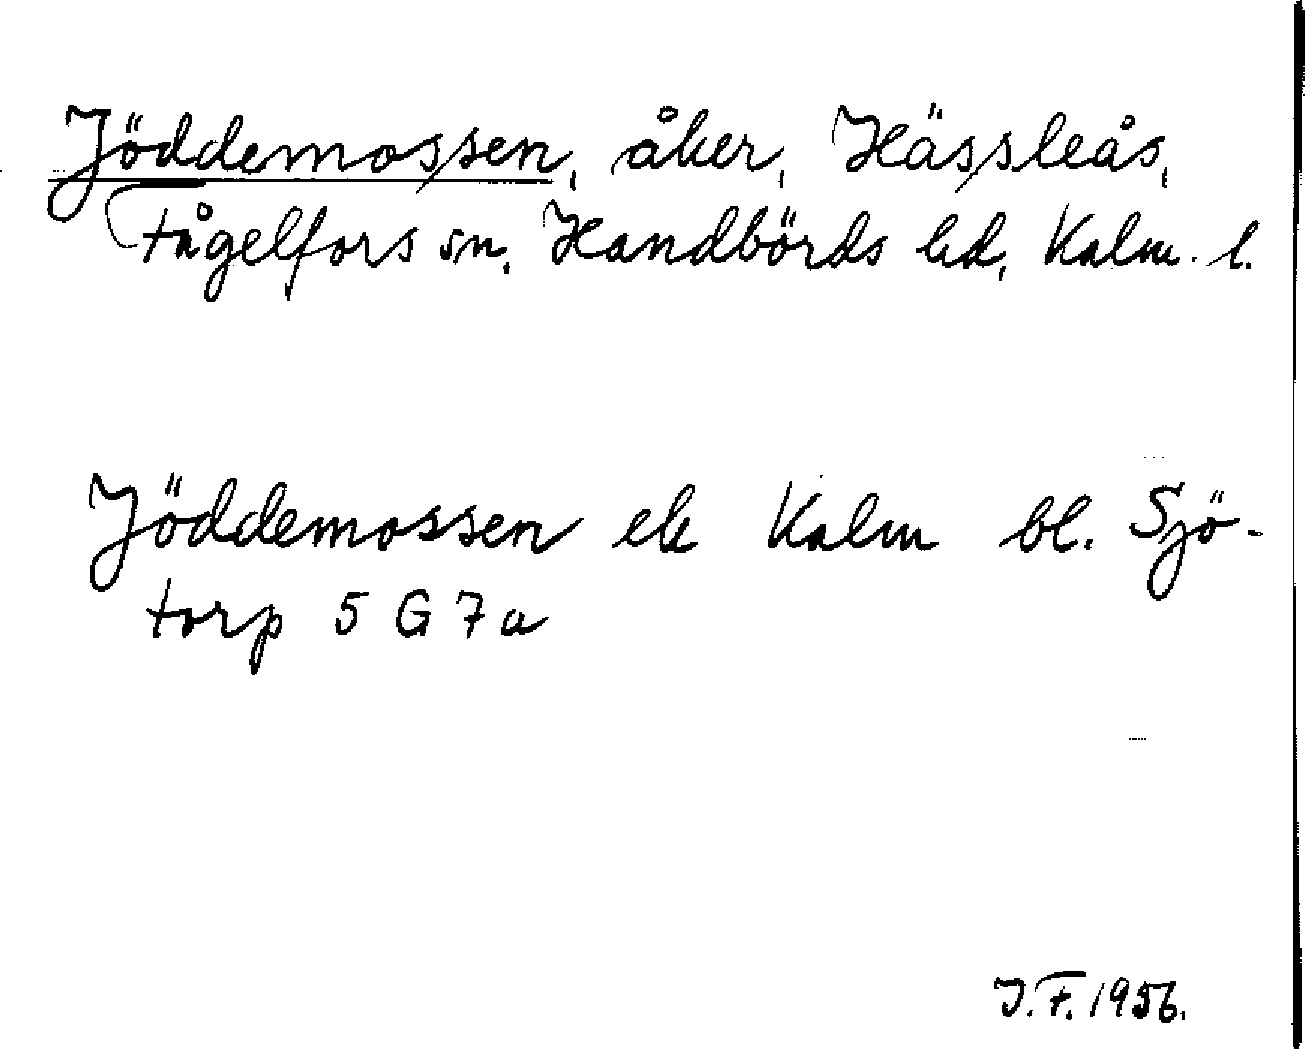 Jöddemossen, åker, Hässleås,
Fågelfors sn, Handbörds hd, Kalm. l.
Jöddemossen ek Kalm bl. Sjö-
torp 5 G 7a
J.F. 1956.